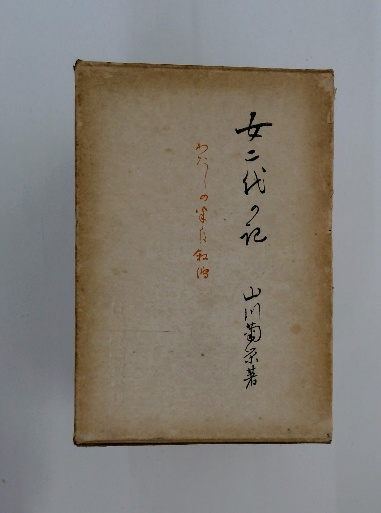 女二代の記
山川菊栄著
わたしの半自叙伝